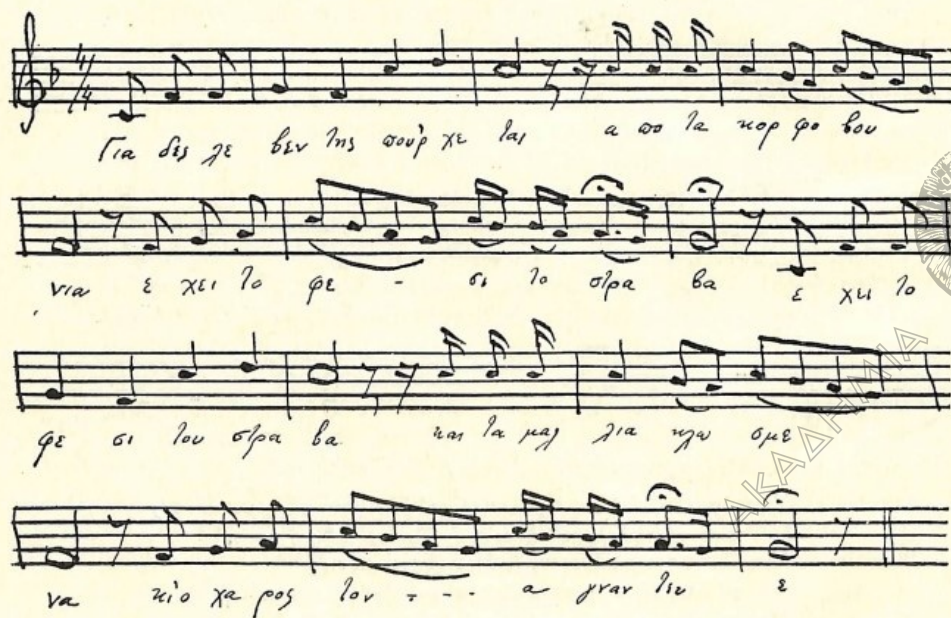 Για δες λε βεν της πούρ χε ται α πο τα κορ φο βου
νια ε χει το φε - σι το στρα βα ε χει το
φε σι του στρα βα και τα μαλ λια κλω σμε
να κι'ο χα ρος τον - - - α γναν τευ ε
ΑΚΑΔΗΜΙΑ